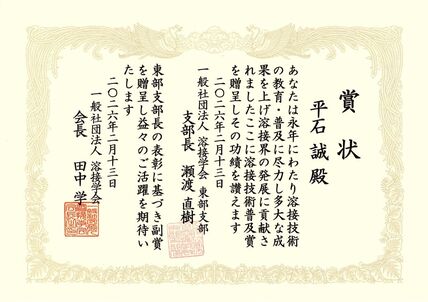 賞状
平石 誠 殿
あなたは永年にわたり溶接技術
の教育・普及に尽力し多大な成
果を上げ溶接界の発展に貢献さ
れましたここに溶接技術普及賞
を贈呈しその功績を讃えます
二〇二六年二月十三日
一般社団法人 溶接学会 東部支部
支部長 瀬渡 直樹
東部支部長の表彰に基づき副賞
を贈呈し益々のご活躍を期待い
たします
二〇二六年二月十三日
一般社団法人 溶接学会
会長 田中 学